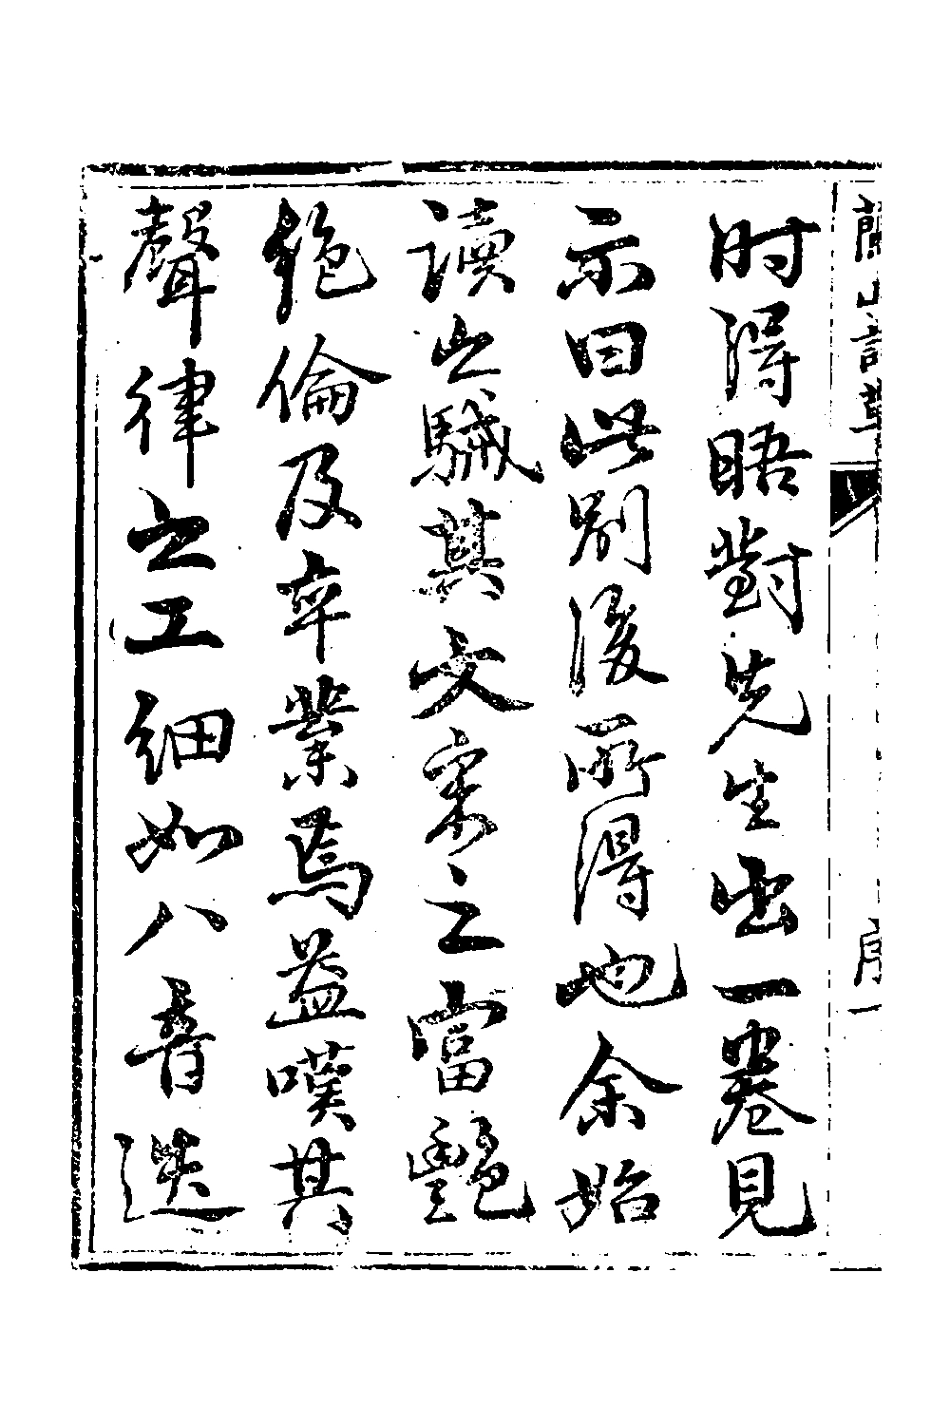 蘭山詩草
序
一
时得晤對先生出一卷見
示曰此別後所得也余始
讀之駴其文采之富艷
絶倫及卒業焉益嘆其
聲律之工細如八音迭